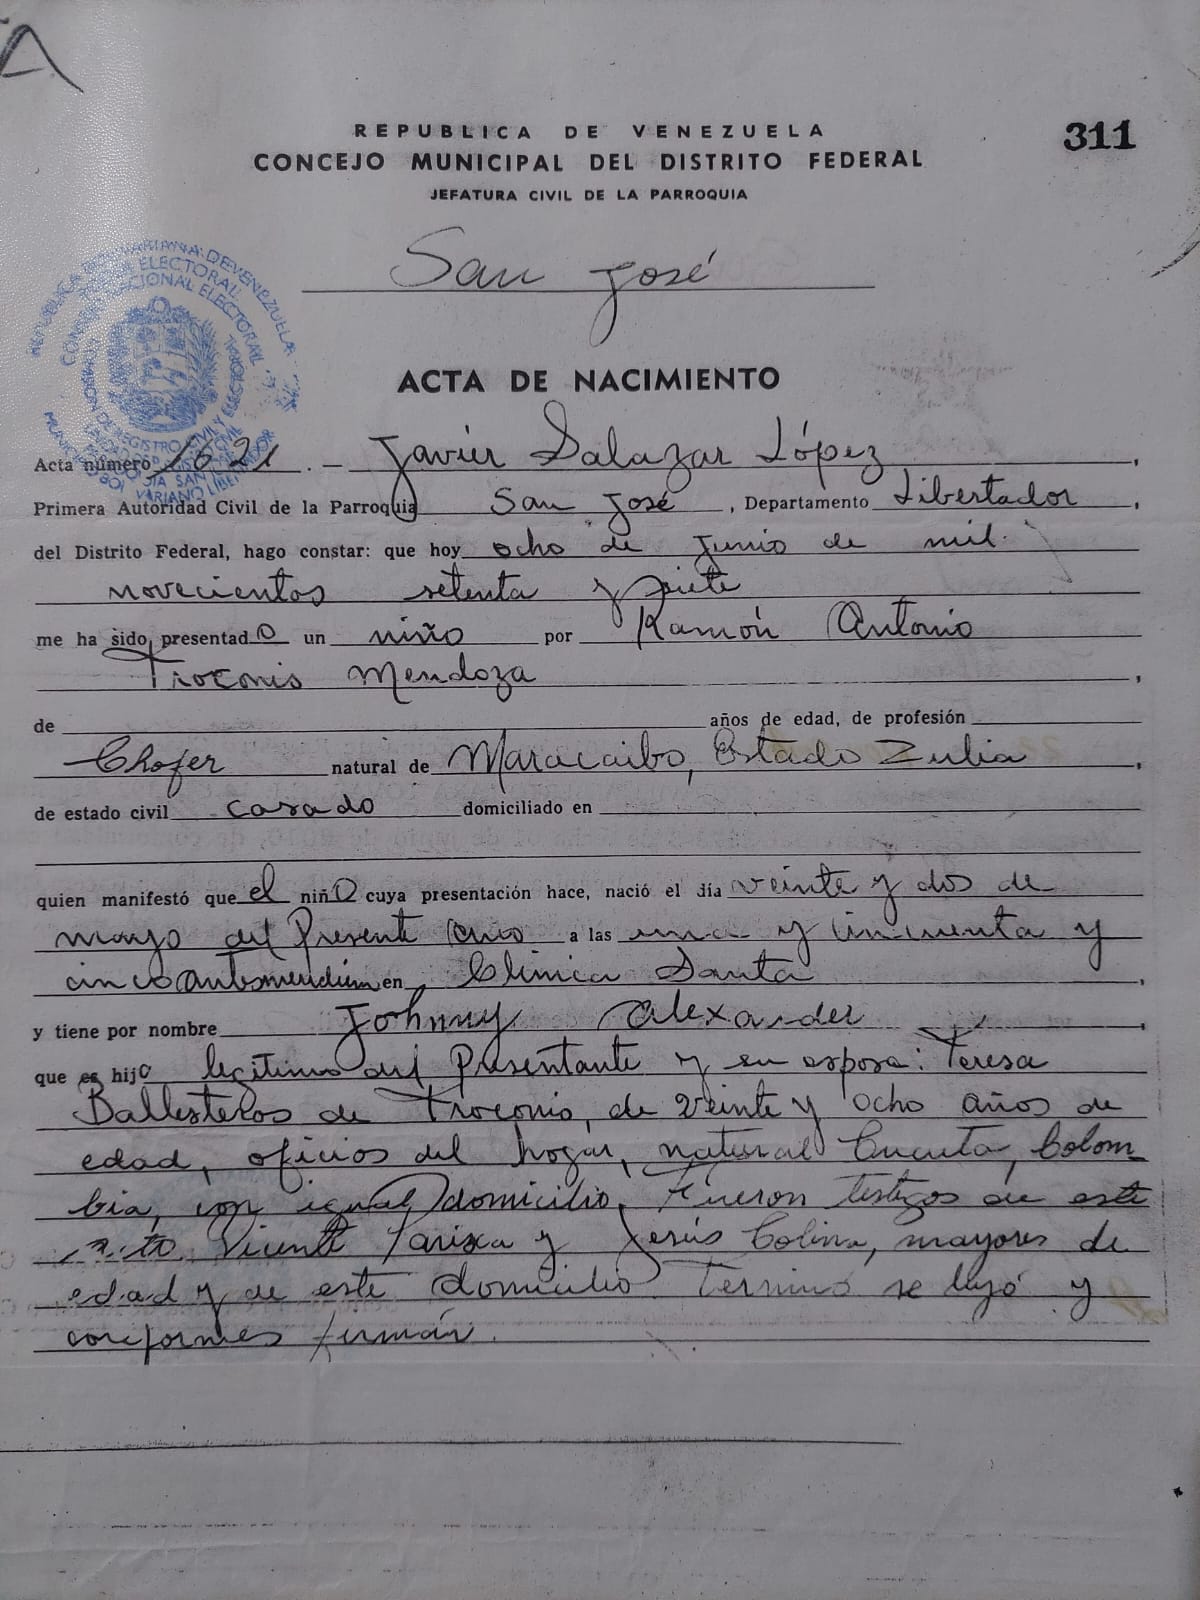 REPUBLICA DE VENEZUELA
311
CONCEJO MUNICIPAL DEL DISTRITO FEDERAL
JEFATURA CIVIL DE LA PARROQUIA
San José
ACTA DE NACIMIENTO
Acta número 1621 .- Javier Salazar López,
Primera Autoridad Civil de la Parroquia San José, Departamento Libertador,
del Distrito Federal, hago constar: que hoy ocho de Junio de mil
novecientos setenta y siete
me ha sido presentado un niño por Ramón Antonio
Troconis Mendoza,
de años de edad, de profesión
Chofer natural de Maracaibo, Estado Zulia,
de estado civil casado domiciliado en
quien manifestó que el niño cuya presentación hace, nació el día veinte y dos de
mayo del Presente año a las una y cincuenta y
cinco antemeridiem en, Clinica Santa,
y tiene por nombre Johnny Alexander,
que es hijo legitimo del Presentante y su esposa: Teresa
Ballesteros de Troconis, de veinte y ocho años de
edad, oficios del hogar, natural Cucuta, Colom-
bia, con igual domicilio. Fueron testigos de este
Vicente Tarixa y Jesús Colina, mayores de
edad y de este domicilio Termino se leyó y
conformes firmán.